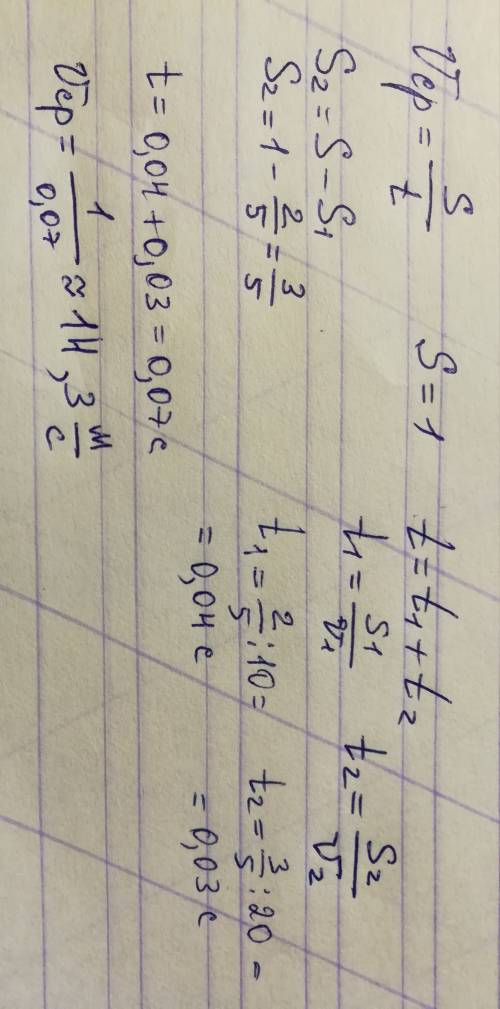 Vср = S/t   S = 1   t = t₁ + t₂
S₂ = S − S₁   t₁ = S₁/V₁   t₂ = S₂/V₂
S₂ = 1 − 2/5 = 3/5   t₁ = 2/5 : 10 =   t₂ = 3/5 : 20 =
= 0,04 с   = 0,03 с
t = 0,04 + 0,03 = 0,07 с
Vср = 1/0,07 ≈ 14,3 м/с